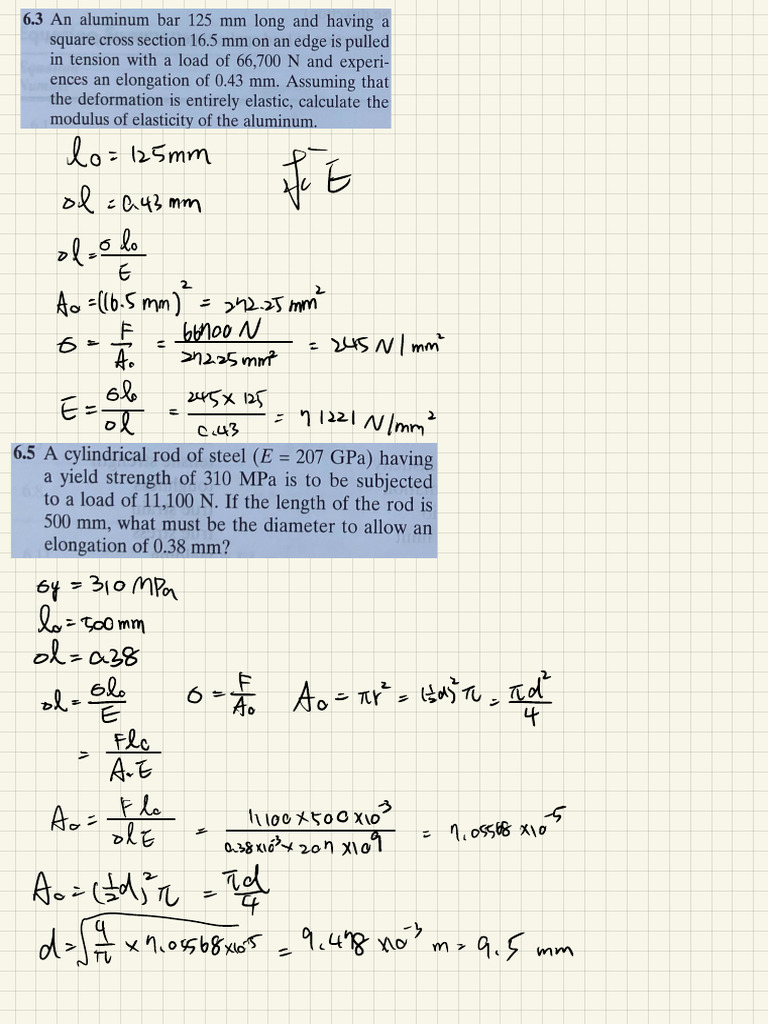 6.3 An aluminum bar 125 mm long and having a
square cross section 16.5 mm on an edge is pulled
in tension with a load of 66,700 N and experi-
ences an elongation of 0.43 mm. Assuming that
the deformation is entirely elastic, calculate the
modulus of elasticity of the aluminum.
l₀ = 125mm
E
Δl = 0.43 mm
Δl = σ l₀ / E
A₀ = (16.5 mm)² = 272.25 mm²
σ = F / A₀ = 66700 N / 272.25 mm² = 245 N/mm²
E = σl₀ / Δl = 245 × 125 / 0.43 = 71221 N/mm²
6.5 A cylindrical rod of steel (E = 207 GPa) having
a yield strength of 310 MPa is to be subjected
to a load of 11,100 N. If the length of the rod is
500 mm, what must be the diameter to allow an
elongation of 0.38 mm?
σy = 310 MPa
l₀ = 500 mm
Δl = 0.38
Δl = σl₀ / E σ = F / A₀ A₀ = πr² = (½d)²π = πd² / 4
= Fl₀ / A₀E
A₀ = F l₀ / Δl E = 11100 × 500 × 10⁻³ / 0.38×10⁻³ × 207 × 10⁹ = 7.05568 × 10⁻⁵
A₀ = (½d)²π = πd / 4
d = √(4/π × 7.05568×10⁻⁵) = 9.478 × 10⁻³ m = 9.5 mm